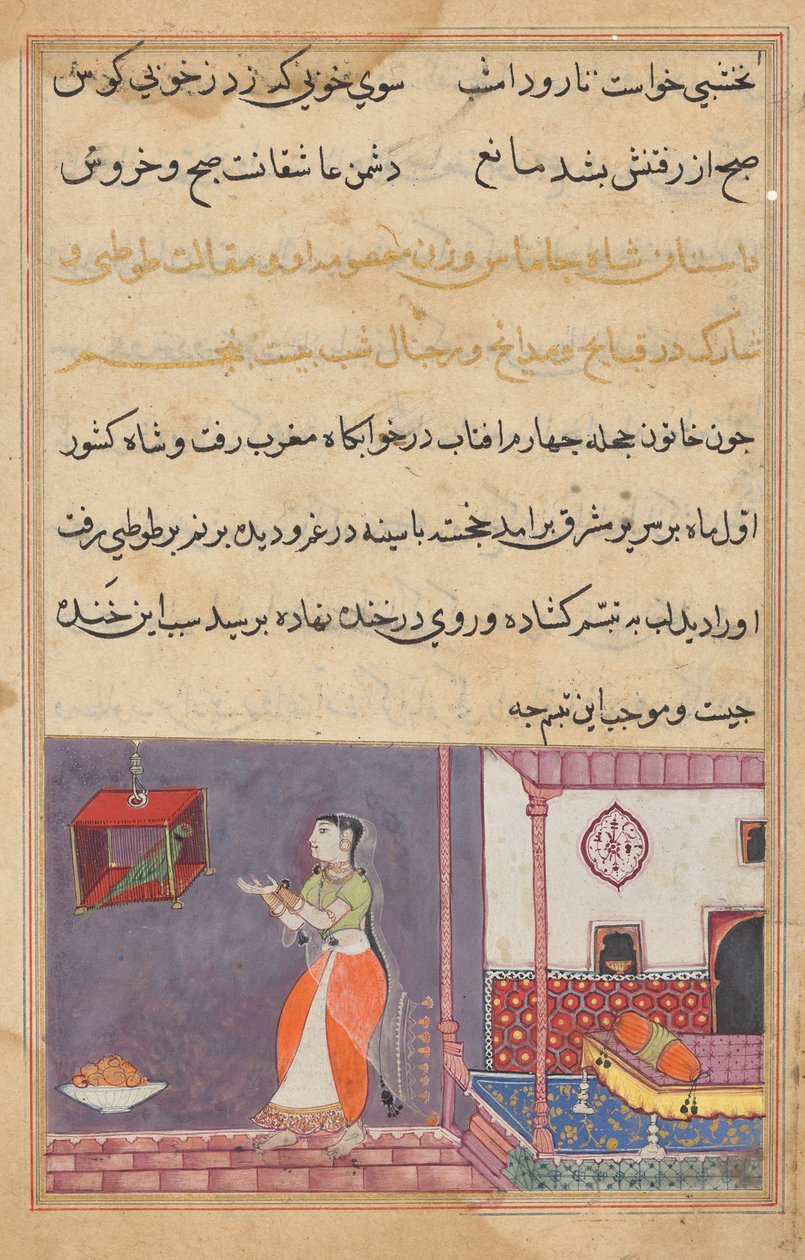 نخشبي خواست تا رود امشب سوي خوبي كه زد ز خوبي كوس
صبح از رفتنش بشد مانع دشمن عاشقانست صبح و خروس
داستان شاه جاماس و زن معصوم او و مقالت طوطي و
شارك در قبايح و مدايح و رجال شب بيست پنجم
جون خاتون حجله جهارم افتاب در خوابكاه مغرب رفت و شاه كشور
اول ماه بر سرير مشرق برامد خجسته با سينه در غم و ديده برنم بر طوطي رفت
او را ديد لب به تبسّم كشاده و روي در خنده نهاده برسيد سبب اين خَنده
جيست و موجب اين تبسم جه